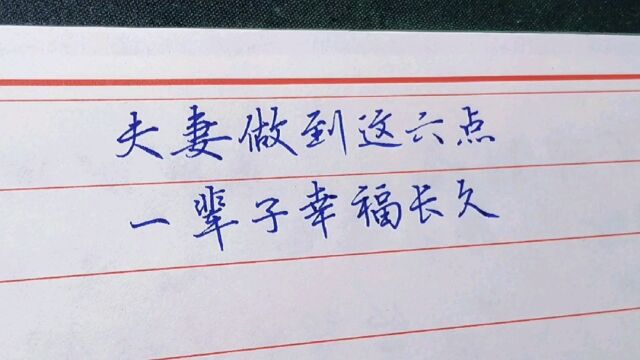 夫妻做到这六点
一辈子幸福长久